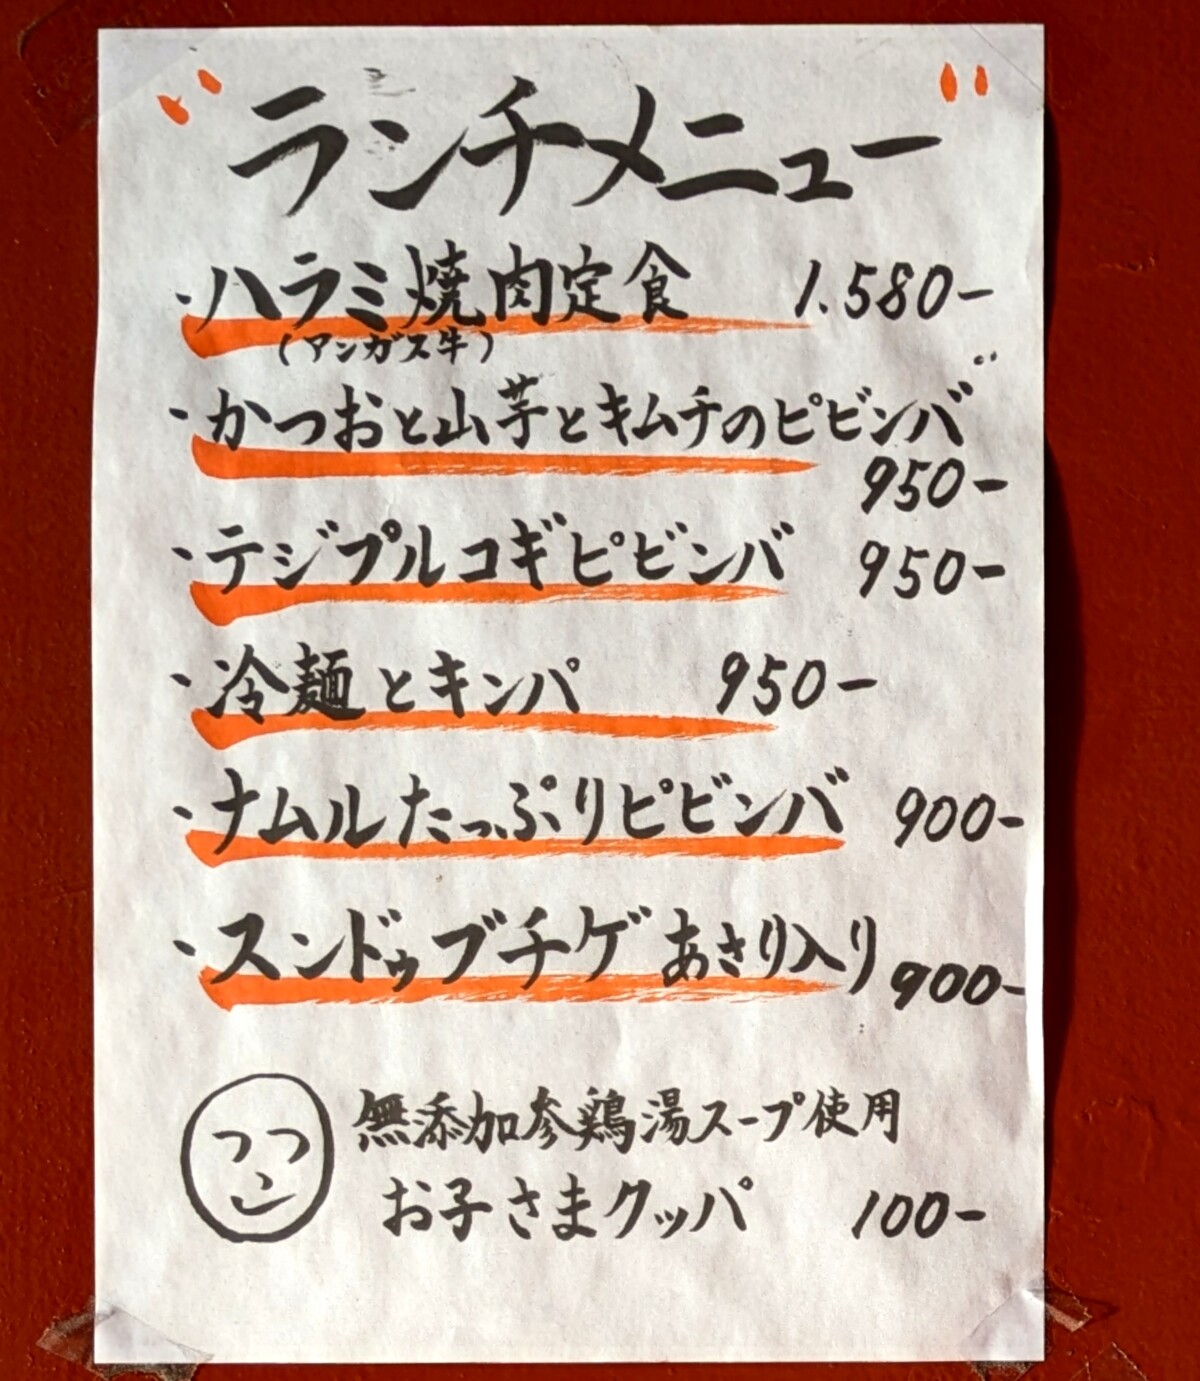 "ランチメニュー"
・ハラミ焼肉定食 1.580-
(アンガス牛)
・かつおと山芋とキムチのピビンバ
950-
・テジプルコギピビンバ 950-
・冷麺とキンパ 950-
・ナムルたっぷりピビンバ 900-
・スンドゥブチゲあさり入り 900-
無添加参鶏湯スープ使用
お子さまクッパ 100-